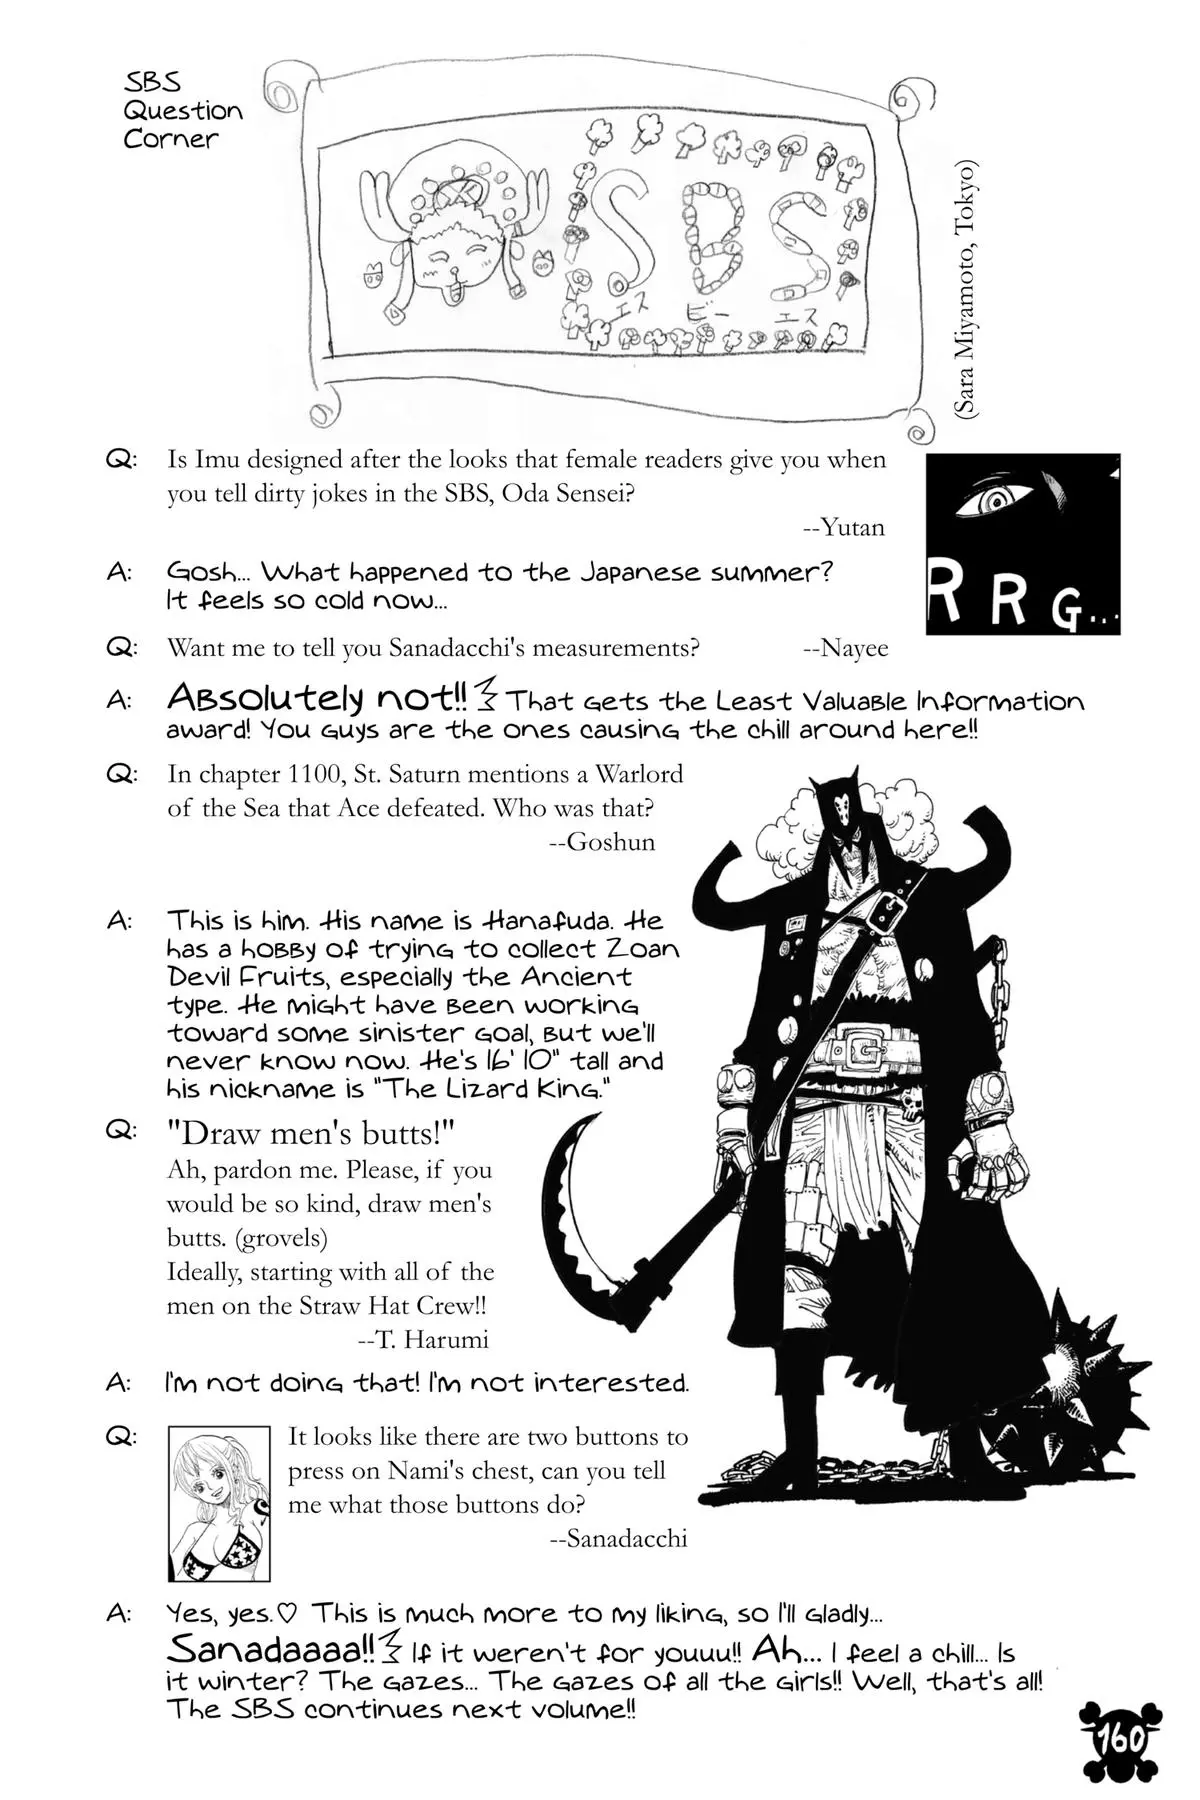 SBS
Question
Corner
SBS
エス ビー エス
(Sara Miyamoto, Tokyo)
Q: Is Imu designed after the looks that female readers give you when
you tell dirty jokes in the SBS, Oda Sensei?
--Yutan
RRG...
A: Gosh... What happened to the Japanese summer?
It feels so cold now...
Q: Want me to tell you Sanadacchi's measurements? --Nayee
A: Absolutely not!! That gets the Least Valuable Information
award! You guys are the ones causing the chill around here!!
Q: In chapter 1100, St. Saturn mentions a Warlord
of the Sea that Ace defeated. Who was that?
--Goshun
A: This is him. His name is Hanafuda. He
has a hobby of trying to collect Zoan
Devil Fruits, especially the Ancient
type. He might have been working
toward some sinister goal, but we'll
never know now. He's 16' 10" tall and
his nickname is "The Lizard King."
Q: "Draw men's butts!"
Ah, pardon me. Please, if you
would be so kind, draw men's
butts. (grovels)
Ideally, starting with all of the
men on the Straw Hat Crew!!
--T. Harumi
A: I'm not doing that! I'm not interested.
Q: It looks like there are two buttons to
press on Nami's chest, can you tell
me what those buttons do?
--Sanadacchi
A: Yes, yes.♡ This is much more to my liking, so I'll gladly...
Sanadaaaa!! If it weren't for youuu!! Ah... I feel a chill... Is
it winter? The gazes... The gazes of all the girls!! Well, that's all!
The SBS continues next volume!!
160